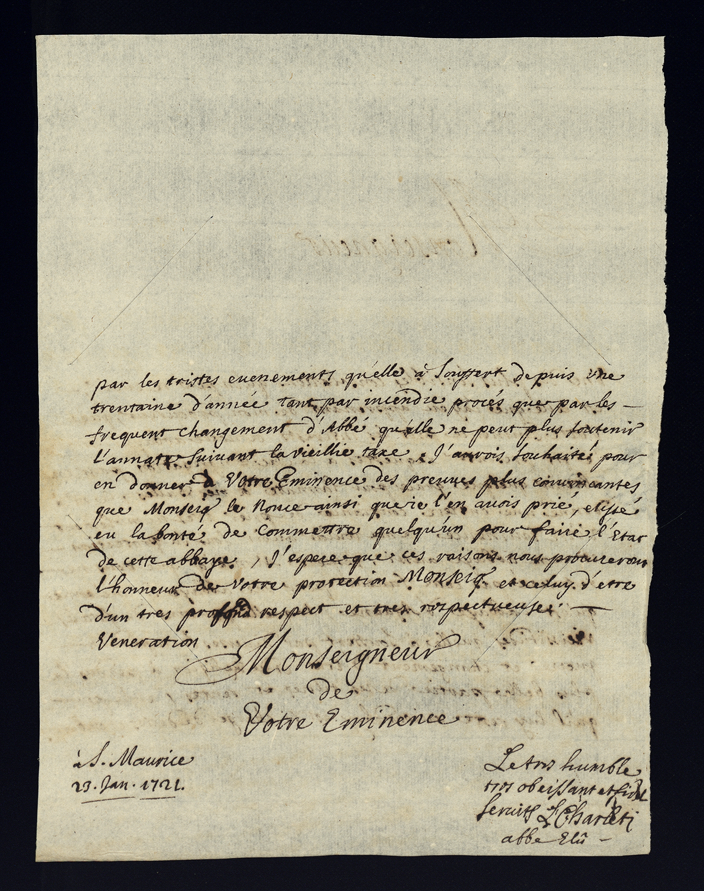 par les tristes evenements qu'elle à souffert depuis une
trentaine d'année tant par incendie procés que par les –
frequent changement d'Abbé qu'elle ne peut plus soutenir
l'annate suivant la vieillie taxe, J'aurois souhaité pour
en donner à Votre Eminence des preuves plus convincantes
que Monseig^r le Nonce ainsi que ie l'en avois prié,
eu la bonté de Commettre quelqu'un pour faire l'Etat
de cette abbaye, J'espere que ces raisons nous procureront
l'honneur de Votre protection Monseig^r et celuy d'etre
d'un tres profond respect et tres respectueuse –
Veneration
Monseigneur
de
Votre Eminence
à S. Maurice
23. Jan. 1721.
Le tres humble
tres obeissant et
servit^r L Charleti
abbe Elû –